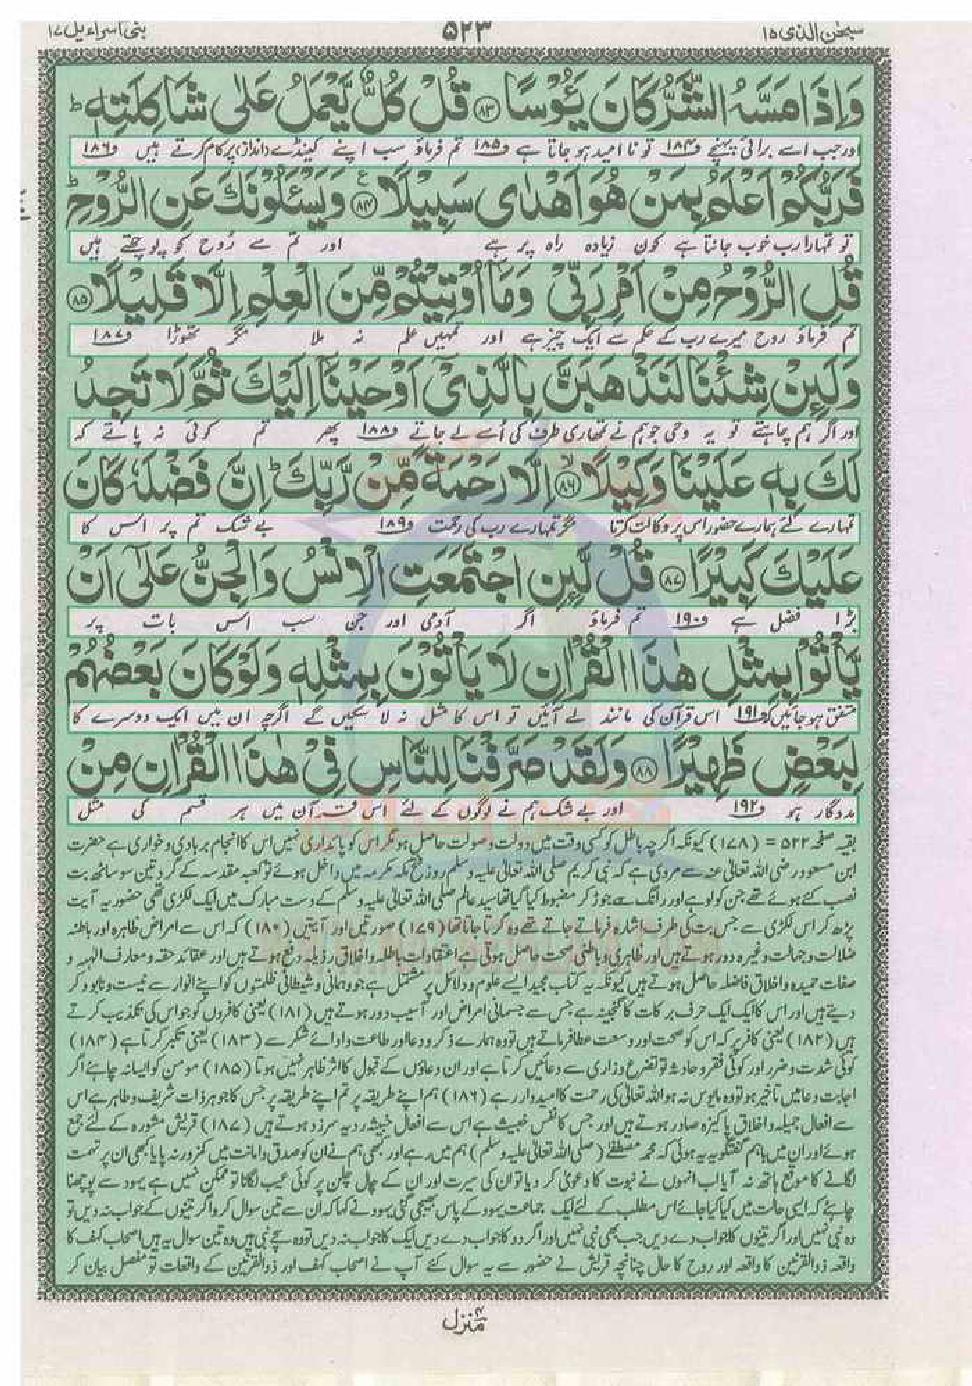 سبحٰن الذی ۱۵ ۵۲۳ بنی اسراءیل ۱۷
وَاِذَا مَسَّهُ الشَّرُّ كَانَ يَـُٔوْسًا ﴿۸۳﴾ قُلْ كُلٌّ يَّعْمَلُ عَلٰى شَاكِلَتِهٖ ؕ
اور جب اسے برائی پہنچے و۱۸۴ تو ناامید ہو جاتا ہے و۱۸۵ تم فرماؤ سب اپنے کینڈے (انداز) پر کام کرتے ہیں و۱۸۶
فَرَبُّكُمْ اَعْلَمُ بِمَنْ هُوَ اَهْدٰى سَبِيْلًا ﴿۸۴﴾ ع وَيَسْـَٔلُوْنَكَ عَنِ الرُّوْحِ ؕ
تو تمہارا رب خوب جانتا ہے کون زیادہ راہ پر ہے اور تم سے رُوح کو پوچھتے ہیں
قُلِ الرُّوْحُ مِنْ اَمْرِ رَبِّيْ وَمَاۤ اُوْتِيْتُمْ مِّنَ الْعِلْمِ اِلَّا قَلِيْلًا ﴿۸۵﴾
تم فرماؤ روح میرے رب کے حکم سے ایک چیز ہے اور تمہیں علم نہ ملا مگر تھوڑا و۱۸۷
وَلَئِنْ شِئْنَا لَنَذْهَبَنَّ بِالَّذِيْۤ اَوْحَيْنَاۤ اِلَيْكَ ثُمَّ لَا تَجِدُ
اور اگر ہم چاہتے تو یہ وحی جو ہم نے تمہاری طرف کی اُسے لے جاتے و۱۸۸ پھر تم کوئی نہ پاتے کہ
لَكَ بِهٖ عَلَيْنَا وَكِيْلًا ﴿۸۶﴾ اِلَّا رَحْمَةً مِّنْ رَّبِّكَ ؕ اِنَّ فَضْلَهٗ كَانَ
تمہارے لئے ہمارے حضور اس پر وکالت کرتا مگر تمہارے رب کی رحمت و۱۸۹ بے شک تم پر اس کا
عَلَيْكَ كَبِيْرًا ﴿۸۷﴾ قُلْ لَّئِنِ اجْتَمَعَتِ الْاِنْسُ وَالْجِنُّ عَلٰۤى اَنْ
بڑا فضل ہے و۱۹۰ تم فرماؤ اگر آدمی اور جن سب اس بات پر
يَّاْتُوْا بِمِثْلِ هٰذَا الْقُرْاٰنِ لَا يَاْتُوْنَ بِمِثْلِهٖ وَلَوْ كَانَ بَعْضُهُمْ
متفق ہو جائیں کہ و۱۹۱ اس قرآن کی مانند لے آئیں تو اس کا مثل نہ لا سکیں گے اگرچہ ان میں ایک دوسرے کا
لِبَعْضٍ ظَهِيْرًا ﴿۸۸﴾ وَلَقَدْ صَرَّفْنَا لِلنَّاسِ فِيْ هٰذَا الْقُرْاٰنِ مِنْ
مددگار ہو و۱۹۲ اور بے شک ہم نے لوگوں کے لئے اس قرآن میں ہر قسم کی مثل
بقیہ صفحہ ۵۲۲ = (۱۷۸) کیونکہ اگرچہ باطل کو کسی وقت میں دولت و صولت حاصل ہو مگر اس کو پائداری نہیں اس کا انجام بربادی و خواری ہے حضرت
ابن مسعود رضی اللہ تعالیٰ عنہ سے مروی ہے کہ نبی کریم صلی اللہ تعالیٰ علیہ وسلم روز فتح مکہ مکرمہ میں داخل ہوئے تو کعبہ مقدسہ کے گرد تین سو ساٹھ بت
نصب کئے ہوئے تھے جن کو لوہے اور رانگ سے جوڑ کر مضبوط کیا گیا تھا سید عالم صلی اللہ تعالیٰ علیہ وسلم کے دست مبارک میں ایک لکڑی تھی حضور یہ آیت
پڑھ کر اس لکڑی سے جس بت کی طرف اشارہ فرماتے جاتے تھے وہ گرتا جاتا تھا (۱۷۹) صورتیں اور آیتیں (۱۸۰) کہ اس سے امراض ظاہرہ اور باطنہ
ضلالت و جہالت وغیرہ دور ہوتے ہیں اور ظاہری و باطنی صحت حاصل ہوتی ہے اعتقادات باطلہ و اخلاق رذیلہ دفع ہوتے ہیں اور عقائد حقہ و معارف الٰہیہ و
صفات حمیدہ و اخلاق فاضلہ حاصل ہوتے ہیں کیونکہ یہ کتاب مجید ایسے علوم و دلائل پر مشتمل ہے جو وہمانی و شیطانی ظلمتوں کو اپنے انوار سے نیست و نابود کر
دیتے ہیں اور اس کا ایک ایک حرف برکات کا گنجینہ ہے جس سے جسمانی امراض اور آسیب دور ہوتے ہیں (۱۸۱) یعنی کافروں کو جو اس کی تکذیب کرتے
ہیں (۱۸۲) یعنی کافر پر کہ اس کو صحت اور وسعت عطا فرماتے ہیں تو وہ ہمارے ذکر و دعا اور طاعت و ادائے شکر سے (۱۸۳) یعنی تکبر کرتا ہے (۱۸۴)
کوئی شدت و ضرر اور کوئی فقر و حادثہ تو تضرع و زاری سے دعائیں کرتا ہے اور ان دعاؤں کے قبول کا اثر ظاہر نہیں ہوتا (۱۸۵) مومن کو ایسا نہ چاہئے اگر
اجابت دعا میں تاخیر ہو تو وہ مایوس نہ ہو اللہ تعالیٰ کی رحمت کا امیدوار رہے (۱۸۶) ہم اپنے طریقہ پر تم اپنے طریقہ پر جس کا جوہر ذات شریف و طاہر ہے اس
سے افعال جمیلہ و اخلاق پاکیزہ صادر ہوتے ہیں اور جس کا نفس خبیث ہے اس سے افعال خبیثہ ردیہ سرزد ہوتے ہیں (۱۸۷) قریش مشورہ کے لئے جمع
ہوئے اور ان میں باہم گفتگو یہ ہوئی کہ محمد مصطفےٰ (صلی اللہ تعالیٰ علیہ وسلم) ہم میں رہے اور کبھی ہم نے ان کو صدق و امانت میں کمزور نہ پایا کبھی ان پر تہمت
لگانے کا موقع ہاتھ نہ آیا اب انھوں نے نبوت کا دعویٰ کر دیا تو ان کی سیرت اور ان کے چال چلن پر کوئی عیب لگانا تو ممکن نہیں ہے یہود سے پوچھنا
چاہئے کہ ایسی حالت میں کیا کیا جائے اس مطلب کے لئے ایک جماعت یہود کے پاس بھیجی گئی یہود نے کہا کہ ان سے تین سوال کرو اگر تینوں کے جواب نہ دیں تو
وہ نبی نہیں اور اگر تینوں کا جواب دے دیں جب بھی نبی نہیں اور اگر دو کا جواب دے دیں ایک کا جواب نہ دیں تو وہ سچے نبی ہیں وہ تین سوال یہ ہیں اصحاب کہف کا
واقعہ ذوالقرنین کا واقعہ اور روح کا حال چنانچہ قریش نے حضور سے یہ سوال کئے آپ نے اصحاب کہف اور ذوالقرنین کے واقعات تو مفصل بیان کر
منزل ۴